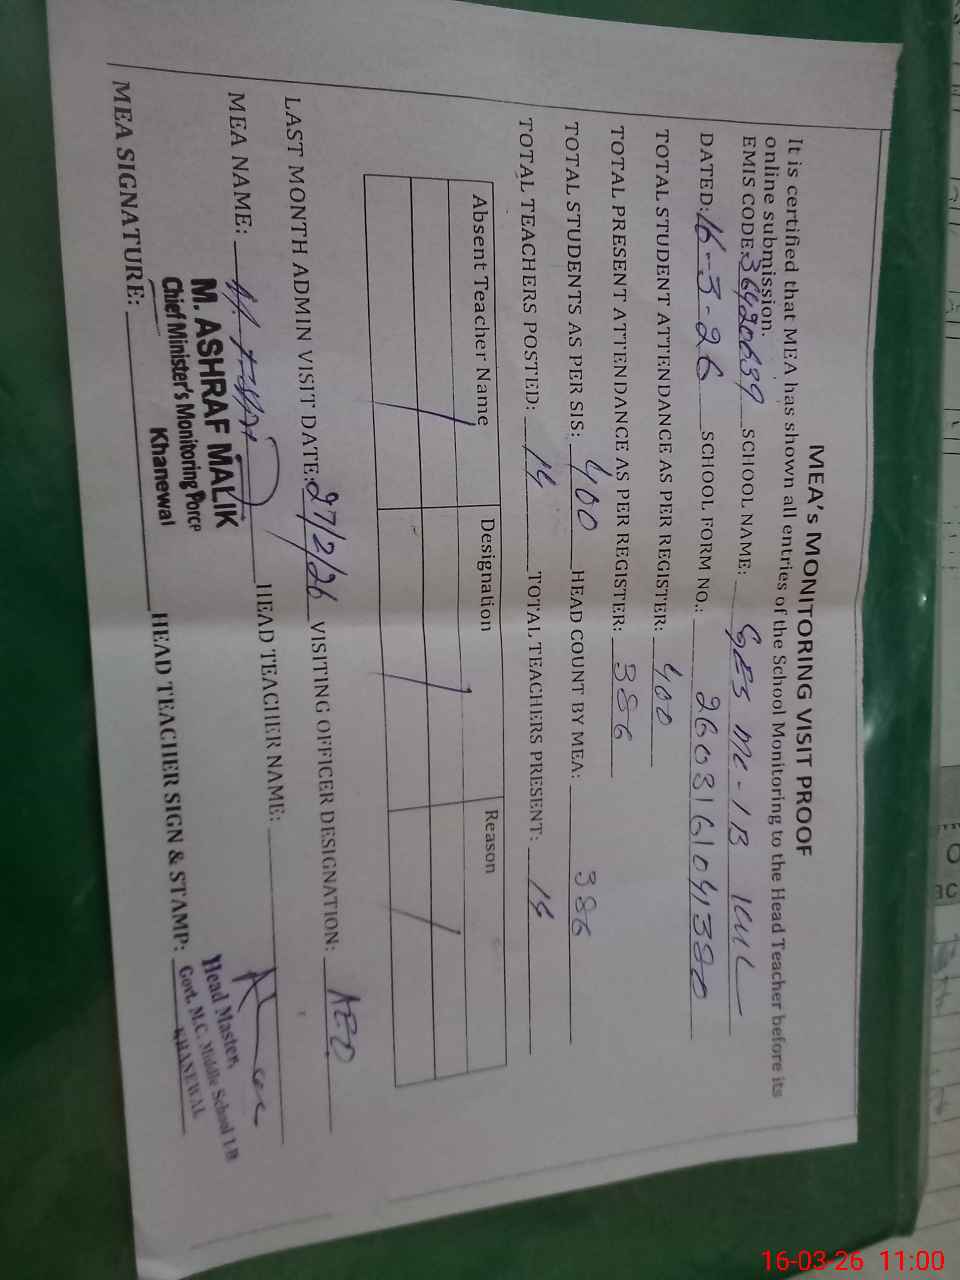 MEA's MONITORING VISIT PROOF
It is certified that MEA has shown all entries of the School Monitoring to the Head Teacher before its
online submission.
EMIS CODE: 36420639 SCHOOL NAME: GES MC-1B KWL
DATED: 16-3-26 SCHOOL FORM NO.:
TOTAL STUDENT ATTENDANCE AS PER REGISTER: 400
TOTAL PRESENT ATTENDANCE AS PER REGISTER: 386
TOTAL STUDENTS AS PER SIS: 400 HEAD COUNT BY MEA: 386
TOTAL TEACHERS POSTED: 14 TOTAL TEACHERS PRESENT: 14
Absent Teacher Name Designation Reason
LAST MONTH ADMIN VISIT DATE: 27/2/26 VISITING OFFICER DESIGNATION: AEO
MEA NAME: HEAD TEACHER NAME:
M. ASHRAF MALIK
Chief Minister's Monitoring Force
Khanewal
MEA SIGNATURE: HEAD TEACHER SIGN & STAMP:
Head Master,
Govt. M.C. Middle School 1/B
KHANEWAL
16-03-26 11:00